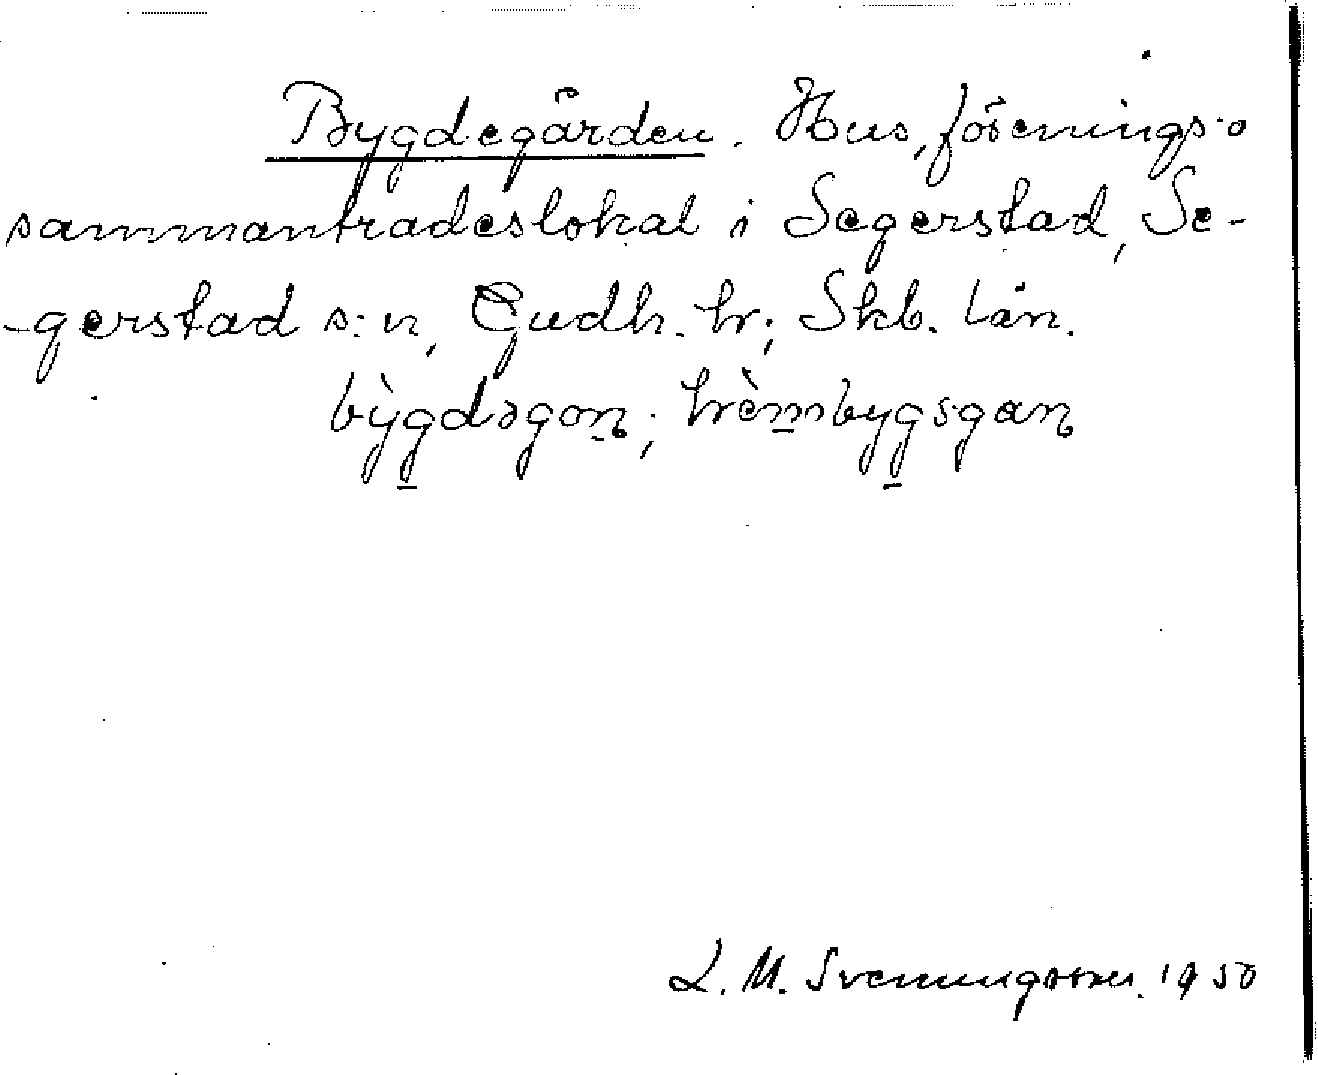 Bygdegården. Hus, förenings- o
sammanträdeslokal i Segerstad, Se-
-gerstad s:n, Gudh. hr; Skb. län.
bỳgdəgon; hrèmbygsgan
L. M. Svenningsson. 1950